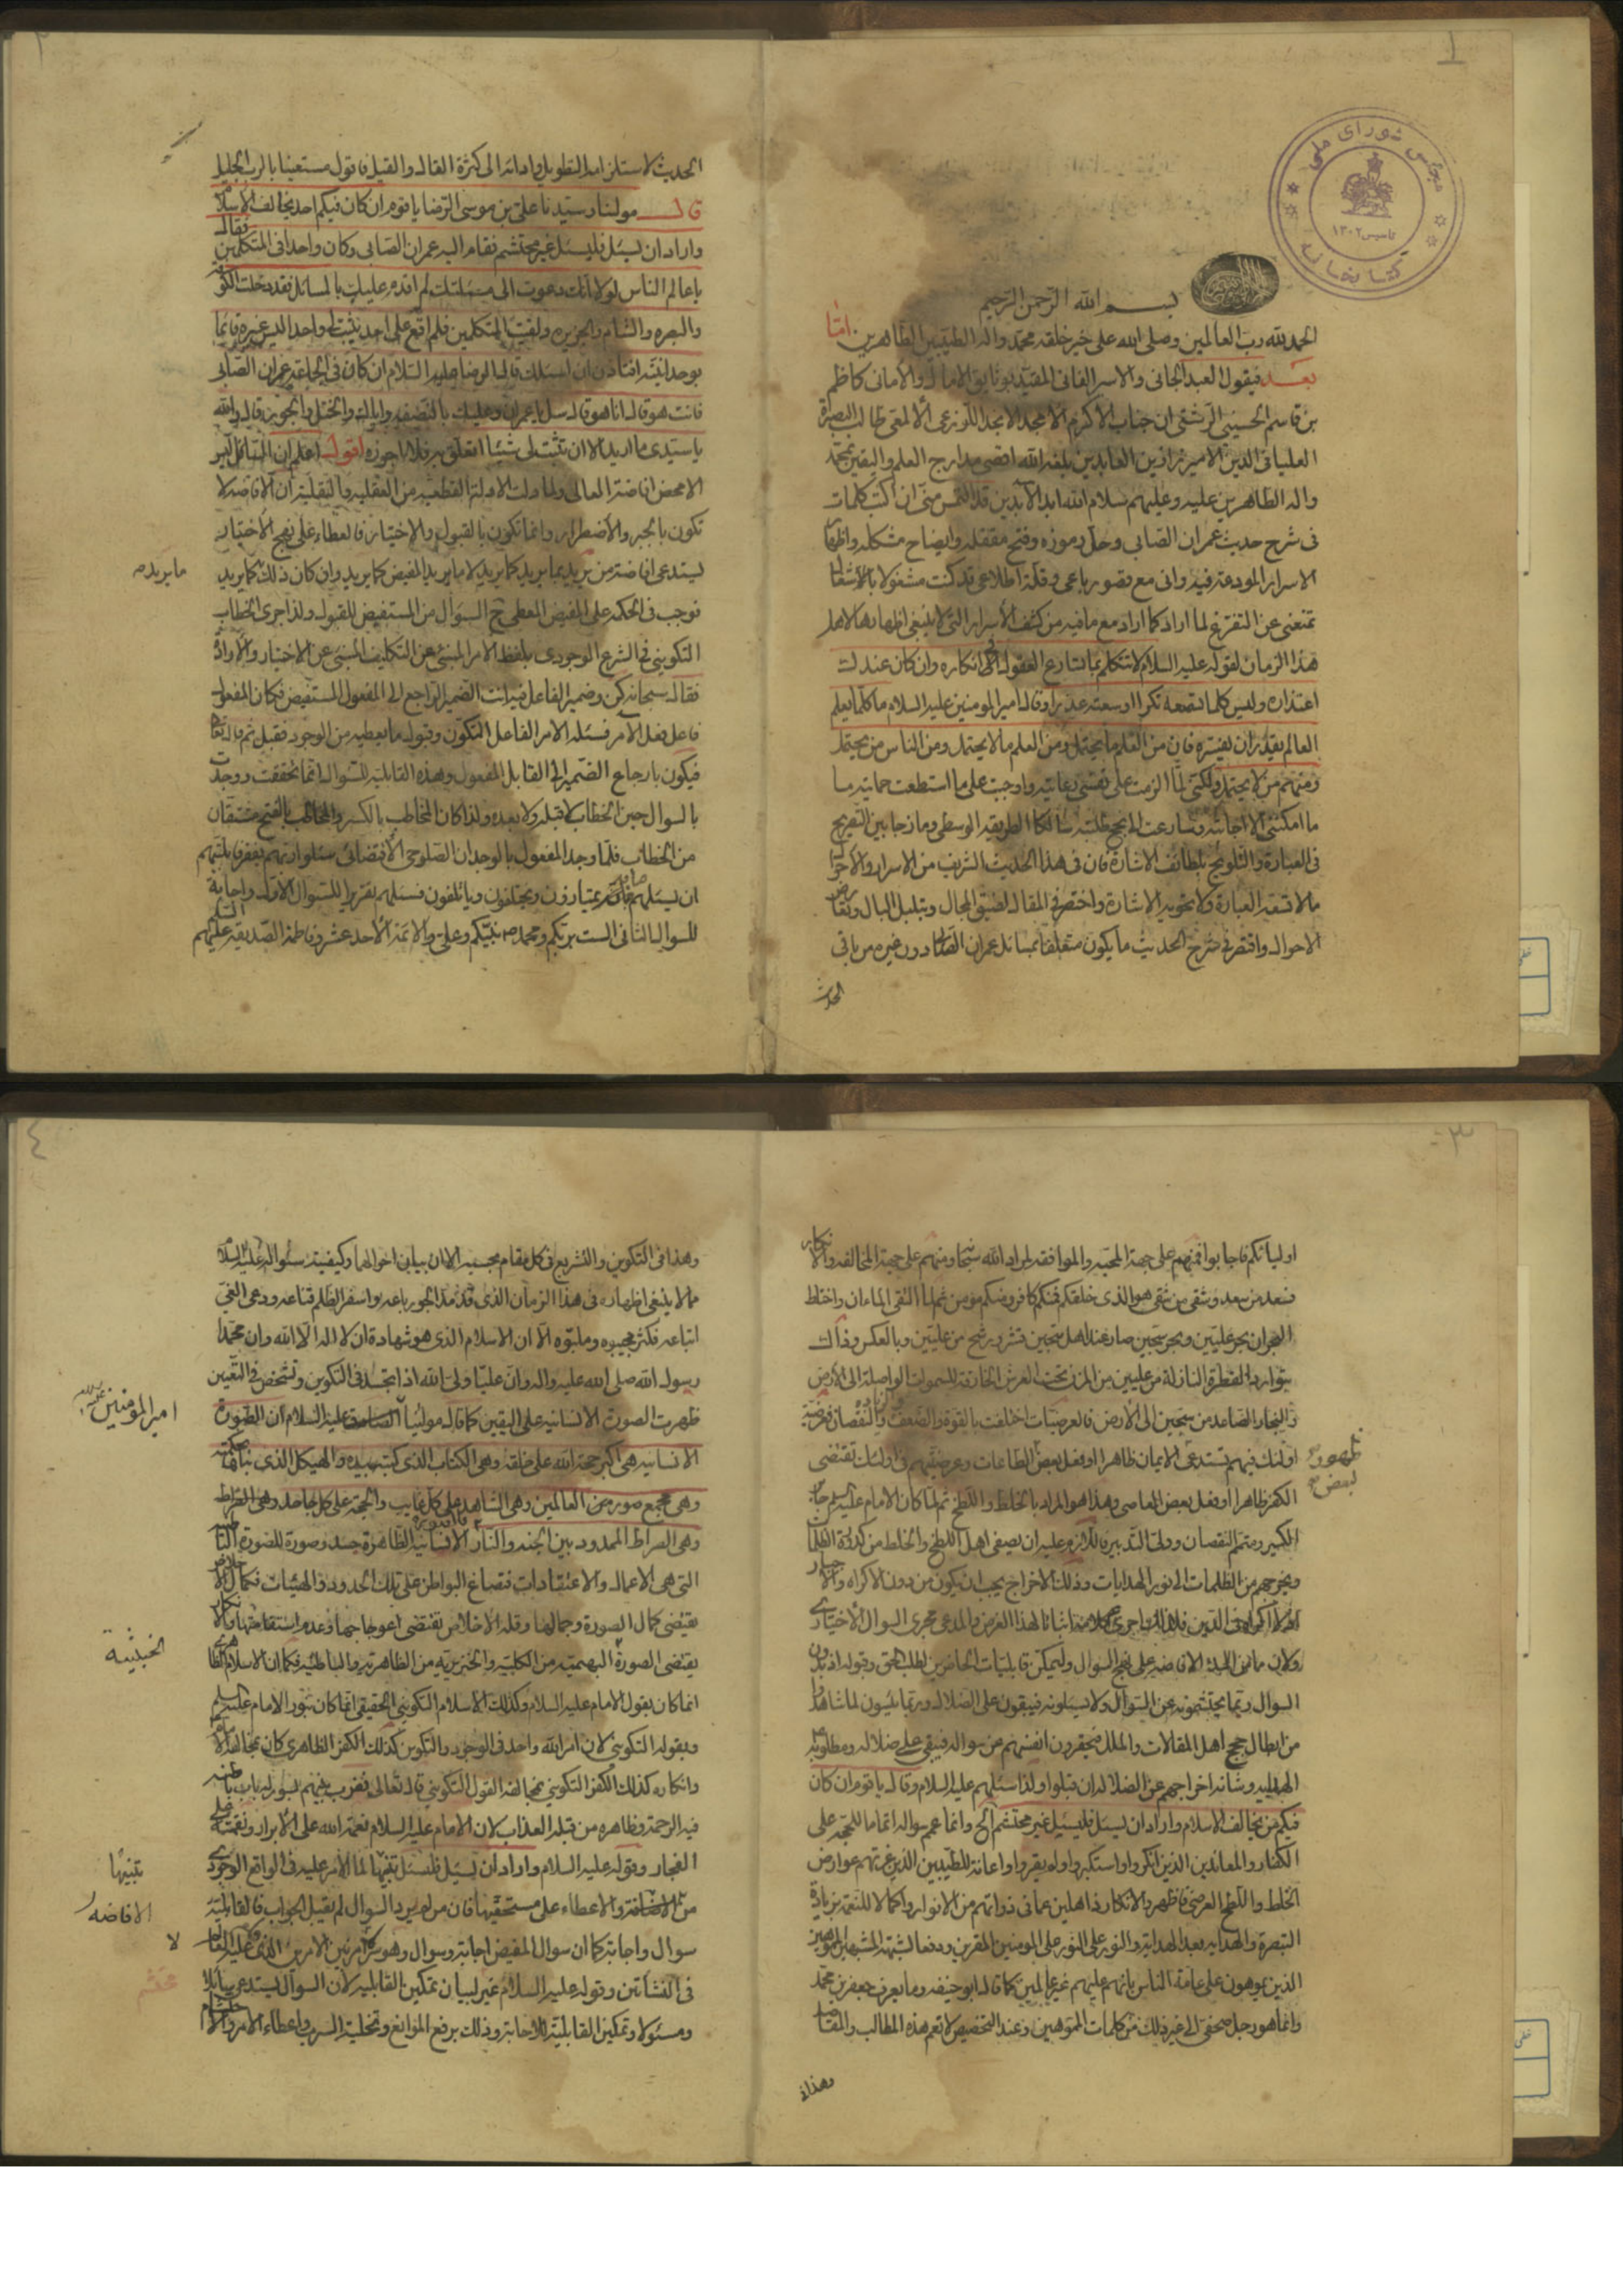 مجلس شورای ملی
تاسیس ۱۳۰۲
کتابخانه
بسم الله الرحمن الرحيم
الحمد لله رب العالمين وصلى الله على خير خلقه محمد واله الطيبين الطاهرين اما
بعد فيقول العبد الجانى والاسير الفانى المقيد بوثايق الامال والأمانى كاظم
بن قاسم الحسينى الرشتى ان جناب الاكرم الامجد الانجد اللوذعى الألمعى طالب البصيرة
العلياء فى الدين الامير زا زين العابدين بلغه الله اقصى مدارج العلم واليقين بمحمد
واله الطاهرين عليه وعليهم سلام الله ابد الآبدين قد التمس منى ان اكتب كلمات
فى شرح حديث عمران الصابى وحل رموزه وفتح مقفله وايضاح مشكله واظهار
الاسرار المودعة فيه وانى مع قصور باعى وقلة اطلاعى قد كنت مشغولا بالاشغال
تمنعنى عن التفرغ لما اراد كما اراد مع ما فيه من كشف الأسرار التى لا ينبغى اظهارها لاهل
هذا الزمان لقوله عليه السلام لا تتكلم بما تسارع العقول الى انكاره وان كان عندك
اعتذاره وليس كلما تسمعه نكرا اوسعته عذرا وقال امير المومنين عليه السلام ما كلما يعلم
العالم يقدر ان يفسره فان من العلم ما يحتمل ومن العلم ما لا يحتمل ومن الناس من يحتمل
ومنهم من لا يحتمل ولكنى لما الزمت على نفسى رعايته واوجبت على ما استطعت حمايته ما
ما امكننى الا اجابته وسارعت لانجح طلبته سالكا الطريقة الوسطى ومازجا بين التصريح
فى العبارة والتلويح بلطائف الاشارة فان فى هذا الحديث الشريف من الاسرار والاحوال
ما لا تسعه العبارة ولا تحويه الاشارة واختصر فى المقال لضيق المجال وتبلبل البال وتعارض
الاحوال واقتصر فى شرح الحديث ما يكون متعلقا بمسائل عمران الصابى دون غيره من باقى
الحديث
الحديث لاستلزامه التطويل وادائه الى كثرة القال والقيل فاقول مستعينا بالرب الجليل
قال مولينا وسيدنا على بن موسى الرضا يا قوم ان كان فيكم احد يخالف الاسلام
واراد ان يسئل فليسئل غير محتشم فقام اليه عمران الصابى وكان واحدا فى المتكلمين فقال
يا عالم الناس لولا انك دعوت الى مسئلتك لم اقدم عليك بالمسائل فقد دخلت الكوفة
والبصره والشام والجزيره ولقيت المتكلمين فلم اقع على احد يثبت لى واحدا ليس غيره قائما
بوحدانيته افتأذن ان اسئلك قال الرضا عليه السلام ان كان فى الجماعة عمران الصابى
فانت هو قال انا هو قال سل يا عمران وعليك بالنصف واياك والخطل والجور قال والله
يا سيدى ما اريد الا ان تثبت لى شيئا اتعلق به فلا اجوزه اقول اعلم ان السائل ليس
الا محض افاضة العالى ولما دلت الادلة القطعيه من العقليه والنقلية ان الافاضه لا
تكون بالجبر والاضطرار وانما تكون بالقبول والاختيار فالعطاء على نهج الاختيار
يستدعى افاضة من يريد بما يريد كما يريد لا ما يريد المفيض كما يريد وان كان ذلك كما يريد
ما يريده
فوجب فى الحكمة على المفيض المعطى ح السؤال من المستفيض للقبول ولذا جرى الخطاب
التكوينى فى الشرع الوجودى بلفظ الامر المنبئ عن التكليف المبنى عن الاختيار والارادة
فقال سبحانه كن وضمير الفاعل فيه انت الضمير الراجع الى المفعول المستفيض فكان المفعول
فاعل فعل الامر فسئله الامر الفاعل التكون وقبوله ما يعطيه من الوجود فقبل ثم قال تعالى
فيكون بارجاع الضمير الى القابل المفعول وهذه القابلية للسؤال انما تحققت ووجدت
بالسوال حين الخطاب لا قبله ولا بعده ولذا كان المخاطب بالكسر والمخاطب بالفتح مشتقان
من الخطاب فلما وجد المفعول بالوجدان الصلوحى الاقتضائى سئلوا ربهم بفقر قابليتهم
ان يسئلهم يمتازون ويختلفون وياتلفون فسئلهم تقريرا للسئوال الاول واجابة
للسوال الثانى الست بربكم ومحمد ص نبيكم وعلى والائمة الأحد عشر وفاطمة الصديقه عليهم السلم
اوليائكم فاجابوا فمنهم على جهة المحبه والموافقه لمراد الله سبحانه ومنهم على جهة المخالفه والانكار
فسعد من سعد وشقى من شقى هو الذى خلقكم فمنكم كافر ومنكم مؤمن ثم لما التقى الماءان واختلط
البحران بحر عليين وبحر سجين صار عند اهل سجين قشر ورشح من عليين وبالعكس وذلك
بتوارد القطرة النازلة من عليين من المزن تحت العرش الخارقة للسموات الواصلة الى الأرض
والبخار الصاعد من سجين الى الأرض فالعرضيات اختلفت بالقوة والضعف والنقصان فعرضية
اولئك فيهم تستدعى الايمان ظاهرا وفعل بعض الطاعات وعرضيتهم فى اولئك تقتضى
ظهور
بعض
الكفر ظاهرا او فعل بعض المعاصى وهذا هو المراد بالخلط واللطخ ثم لما كان الامام عليه السلم جابر
الكسير ومتمم النقصان وولى التدبير فاللازم عليه ان يصفى اهل اللطخ والخلط من كدورة الظلمات
ويخرجهم من الظلمات الى نور الهدايات وذلك الاخراج يجب ان يكون من دون الاكراه والاجبار
فى الدين فلذلك اجرى كلامه اثباتا لهذا الغرض والمدعى مجرى السوال الاختيارى
ولان مبنى الافاضه على نهج السوال وليمكن قابليات الحاضرين لطلب الحق وقوله اذ بدون
السوال ربما يحتشمونه عن السئوال ولا يسئلونه فيبقون على الضلال وربما يئسون لما شاهدوا
من ابطال حجج اهل المقالات والملل فيحقرون انفسهم من سواله فيبقى على ضلاله ومطلوبه
الهداية وشانه اخراجهم عن الضلالة ان قبلوا ولذا سئلهم عليه السلام وقال يا قوم ان كان
فيكم من يخالف الاسلام واراد ان يسئل فليسئل غير محتشم الخ وانما عمم سواله اتماما للحجة على
الكفار والمعاندين الذين انكروا واستكبروا ولم يقروا واعانة للطيبين الذين غرتهم عوارض
الخلط واللطخ العرضى فاظهروا الانكار ذاهلين عما فى ذواتهم من الانوار واكمالا للنعمة بزيادة
التبصرة والهداية بعد الهداية والنور على النور على المومنين المقرين ودفعا لشبهة المشبهين المموهين
الذين يموهون على عامة الناس بانهم عليهم غير عالمين كما قال ابو حنيفه وما يعرف جعفر بن محمد
وانما هو رجل صحفى الى غير ذلك من كلمات المموهين وعند التخصيص لا تعم هذه المطالب والمقاصد
وهذا فى
وهذا فى التكوين والتشريع فى كل مقام بحسبه الا ان بيان احوالهما وكيفية سئواله عليه السلام
مما لا ينبغى اظهاره فى هذا الزمان الذى قد مد الجور باعه واسفر الظلم قناعه ودعى الغى
اتباعه فكثر مجيبوه وملبوه الا ان الاسلام الذى هو شهادة ان لا اله الا الله وان محمدا
رسول الله صلى الله عليه واله وان عليا ولى الله اذا تجسد فى التكوين وتشخص فى التعين
ظهرت الصورة الانسانيه على اليقين كما قال مولينا الصادق عليه السلام ان الصورة
امير المؤمنين عليه السلام
الانسانيه هى اكبر حجة الله على خلقه وهى الكتاب الذى كتبه بيده والهيكل الذى بناه بحكمته
وهى مجمع صور من العالمين وهى الشاهد على كل غايب والحجة على كل جاحد وهى الصراط
وهى الصراط الممدود بين الجنه والنار الانسانية الظاهرة جسد وصورة للصورة الباطنية
التى هى الاعمال والاعتقادات فتصباغ البواطن على تلك الحدود والهيئات فكمال الاخلاص
يقتضى كمال الصورة وجمالها وقلة الاخلاص تقتضى اعوجاجها وعدم استقامتها والانكار
يقتضى الصورة البهيميه من الكلبيه والخنزيريه من الظاهرية والباطنيه فكما ان الاسلام الظاهرى
الخبيثة
انما كان بقول الامام عليه السلام وكذلك الاسلام التكوينى الحقيقى انما كان بنور الامام عليه السلم
وبقوله التكوينى لان امر الله واحد فى الوجود والتكوين كذلك الكفر الظاهرى كان بمخالفة الامام
وانكاره كذلك الكفر التكوينى بمخالفة القول التكوينى قال تعالى فضرب بينهم بسور له باب باطنه
فيه الرحمة وظاهره من قبله العذاب لان الامام عليه السلام نعمة الله على الابرار ونقمته على
الفجار وقوله عليه السلام واراد ان يسئل فليسئل تنبيها لما الأمر عليه فى الواقع الوجودى
تنبيها
من الافاضة والاعطاء على مستحقيها فان من لم يرد السوال لم يقبل الجواب فالقابلية
الافاضه
سوال واجابة كما ان سوال المفيض اجابة وسوال وهو سر الامر بين الامرين الذى عليه القوام
لا
فى النشأتين وقوله عليه السلام غير لبيان تمكين القابليه لان السوال يستدعى سائلا
محتشم
ومسئولا وتمكين القابليه للاجابة وذلك برفع الموانع وتخلية السرب واعطاء الامر والالهام